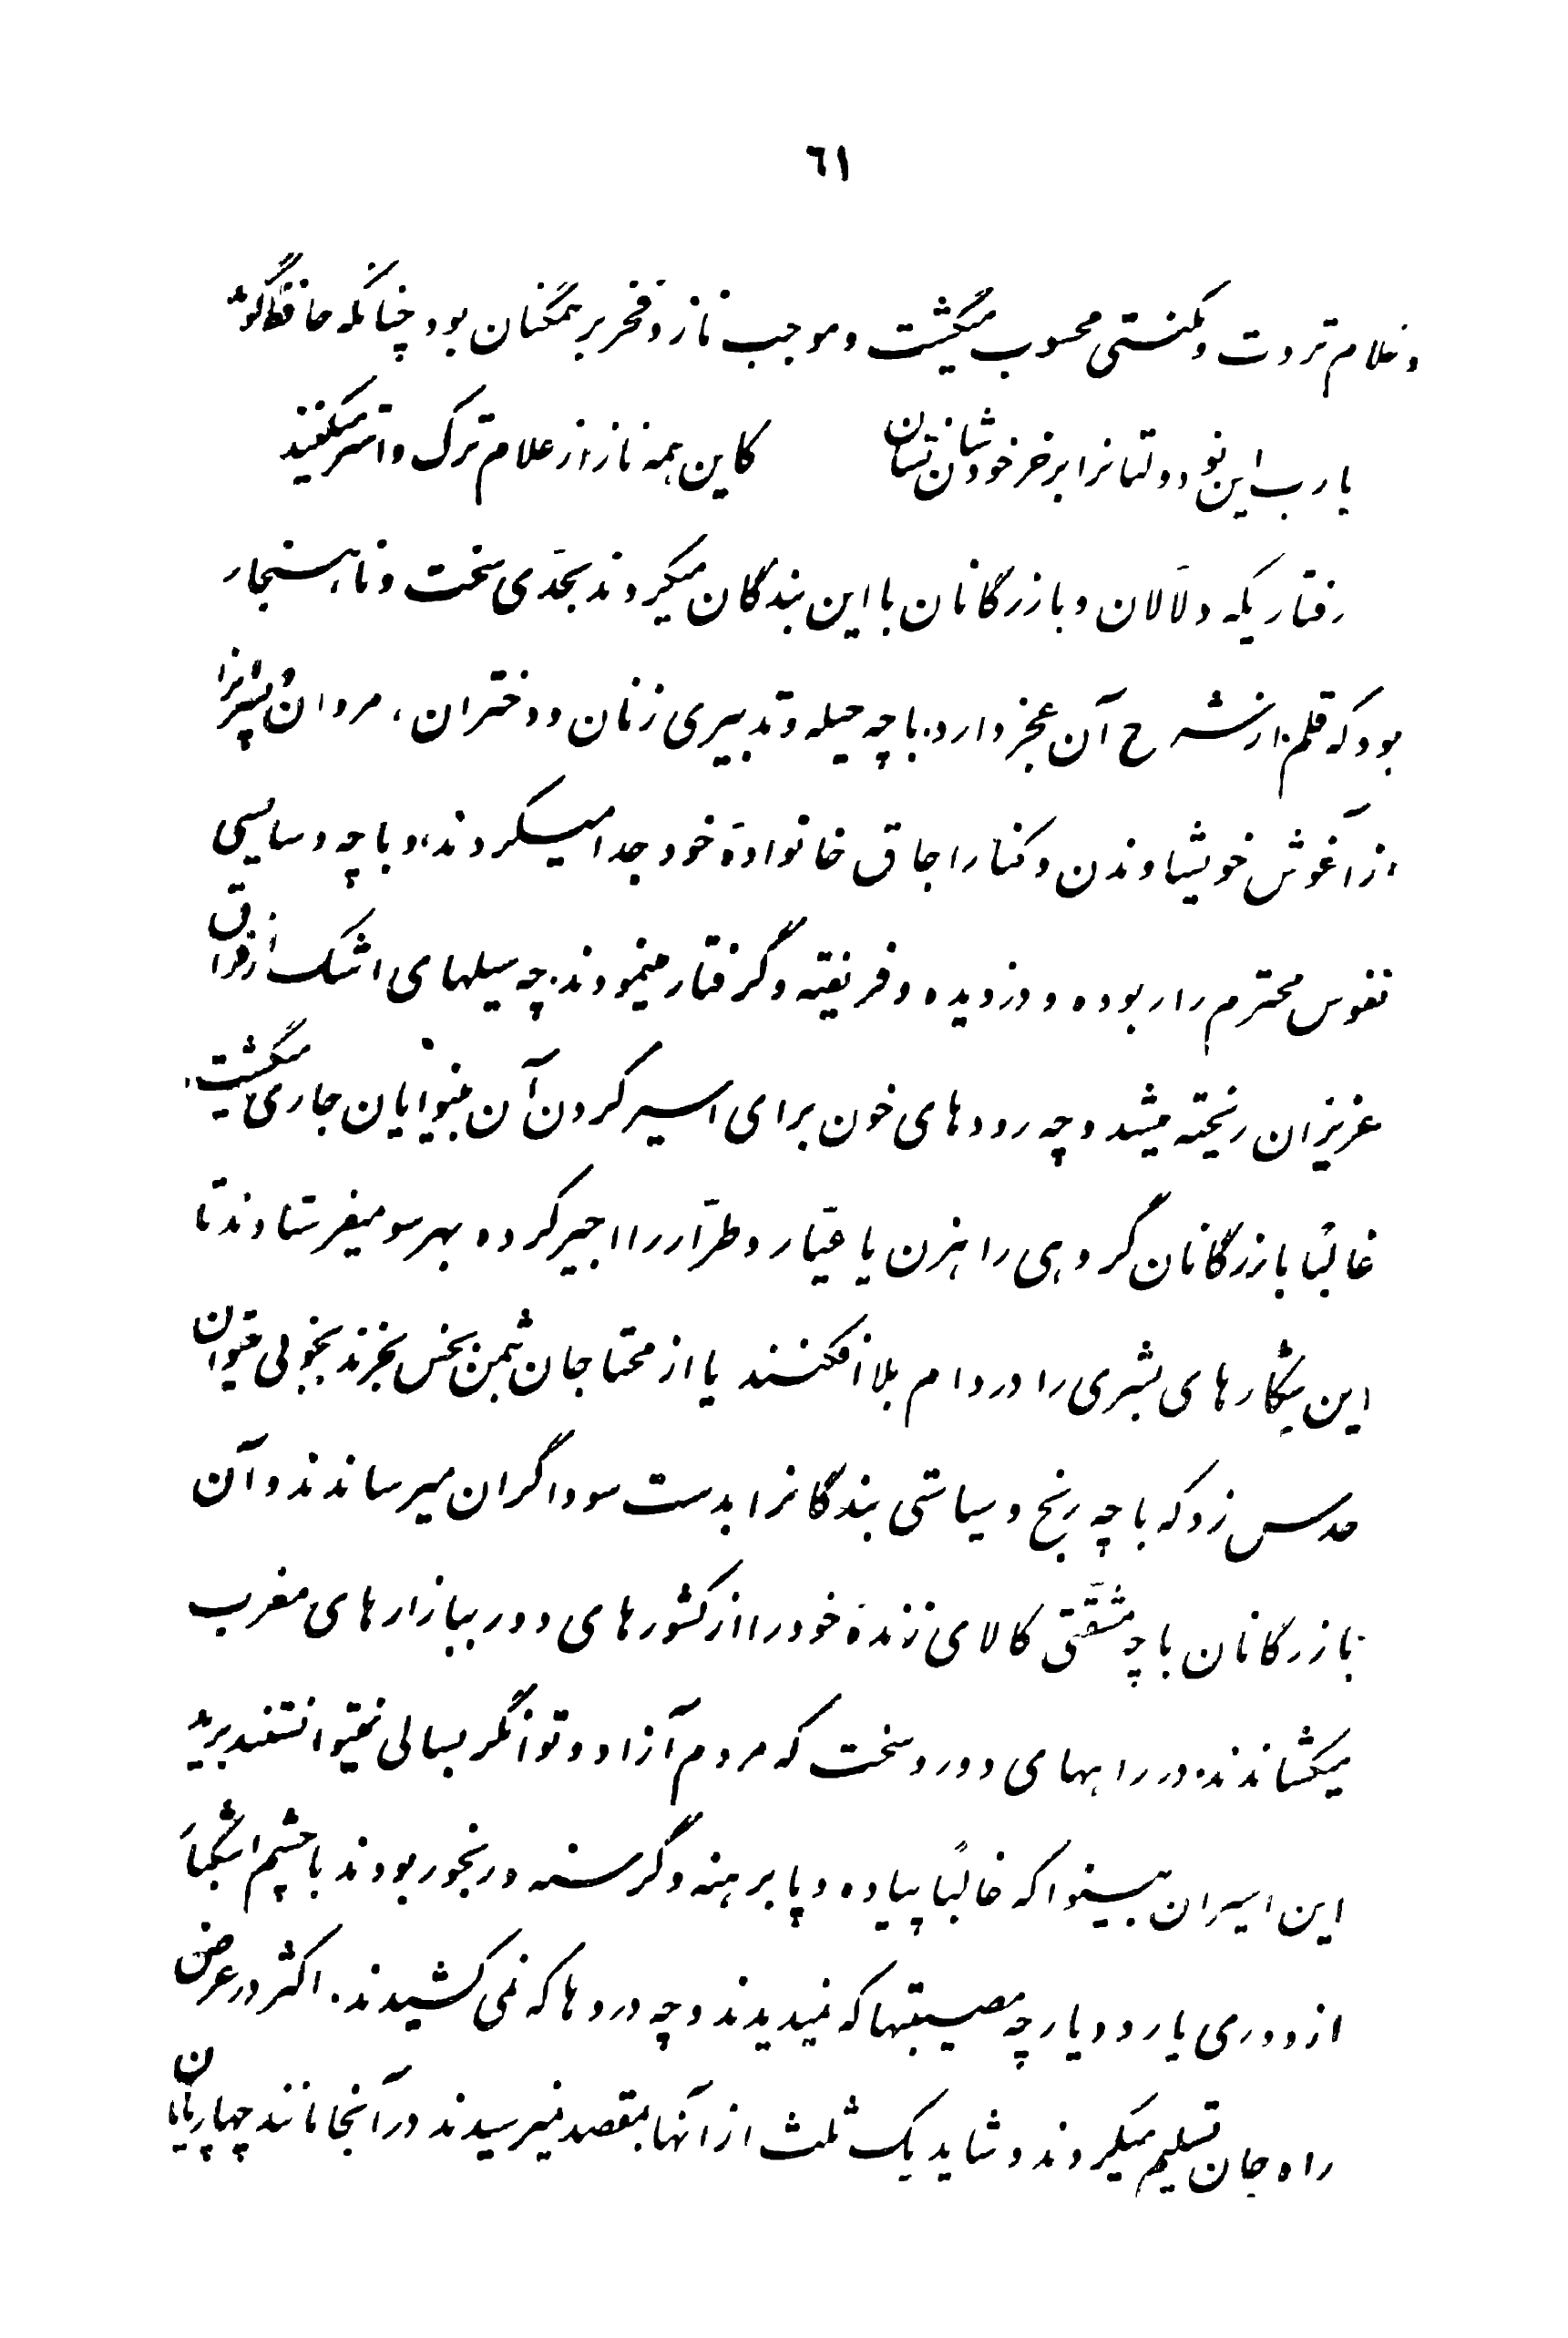 ٦١
و غلام ثروت و مکنتی محسوب میگشت و موجب ناز و فخر بر همگنان بود چنانکه حافظ گوید
یا رب این نو دولتانرا بر خر خودشان نشان
کاین همه ناز از غلام ترک و استر میکنند
رفتاریکه دلّالان و بازرگانان با این بندگان میکردند بحدّی سخت و ناهنجار
بود که قلم از شرح آن عجز دارد. با چه حیله و تدبیری زنان و دختران، مردان و پسرانرا
از آغوش خویشاوندن و کنار اجاق خانوادهٔ خود جدا میکردند، و با چه دسایسی
نفوس محترم را ربوده و دزدیده و فریفته و گرفتار مینمودند. چه سیلهای اشک از فراق
عزیزان ریخته میشد و چه رودهای خون برای اسیر کردن آن بینوایان جاری میگشت.
غالبًا بازرگانان گروهی راهزن یا عیّار و طرّار را اجیر کرده بهر سو میفرستادند تا
این شکارهای بشری را در دام بلا افکنند یا از محتاجان بثمن بخس بخرند بخوبی میتوان
حدس زد که با چه رنج و سیاستی بندگانرا بدست سوداگران میرساندند و آن
بازرگانان با چه مشقّتی کالای زندهٔ خود را از کشورهای دور ببازارهای مغرب
میکشاندند. در راههای دور و سخت که مردم آزاد و توانگر بسالی نمیتوانستند برید
این اسیران بینوا که غالبًا پیاده و پا برهنه و گرسنه و رنجور بودند با چشم اشکبار
از دوری یار و دیار چه مصیبتها که نمیدیدند و چه دردها که نمی کشیدند. اکثر در عرض
راه جان تسلیم میکردند و شاید یک ثلث از آنها بمقصد نمیرسیدند در آنجا مانند چهارپایان